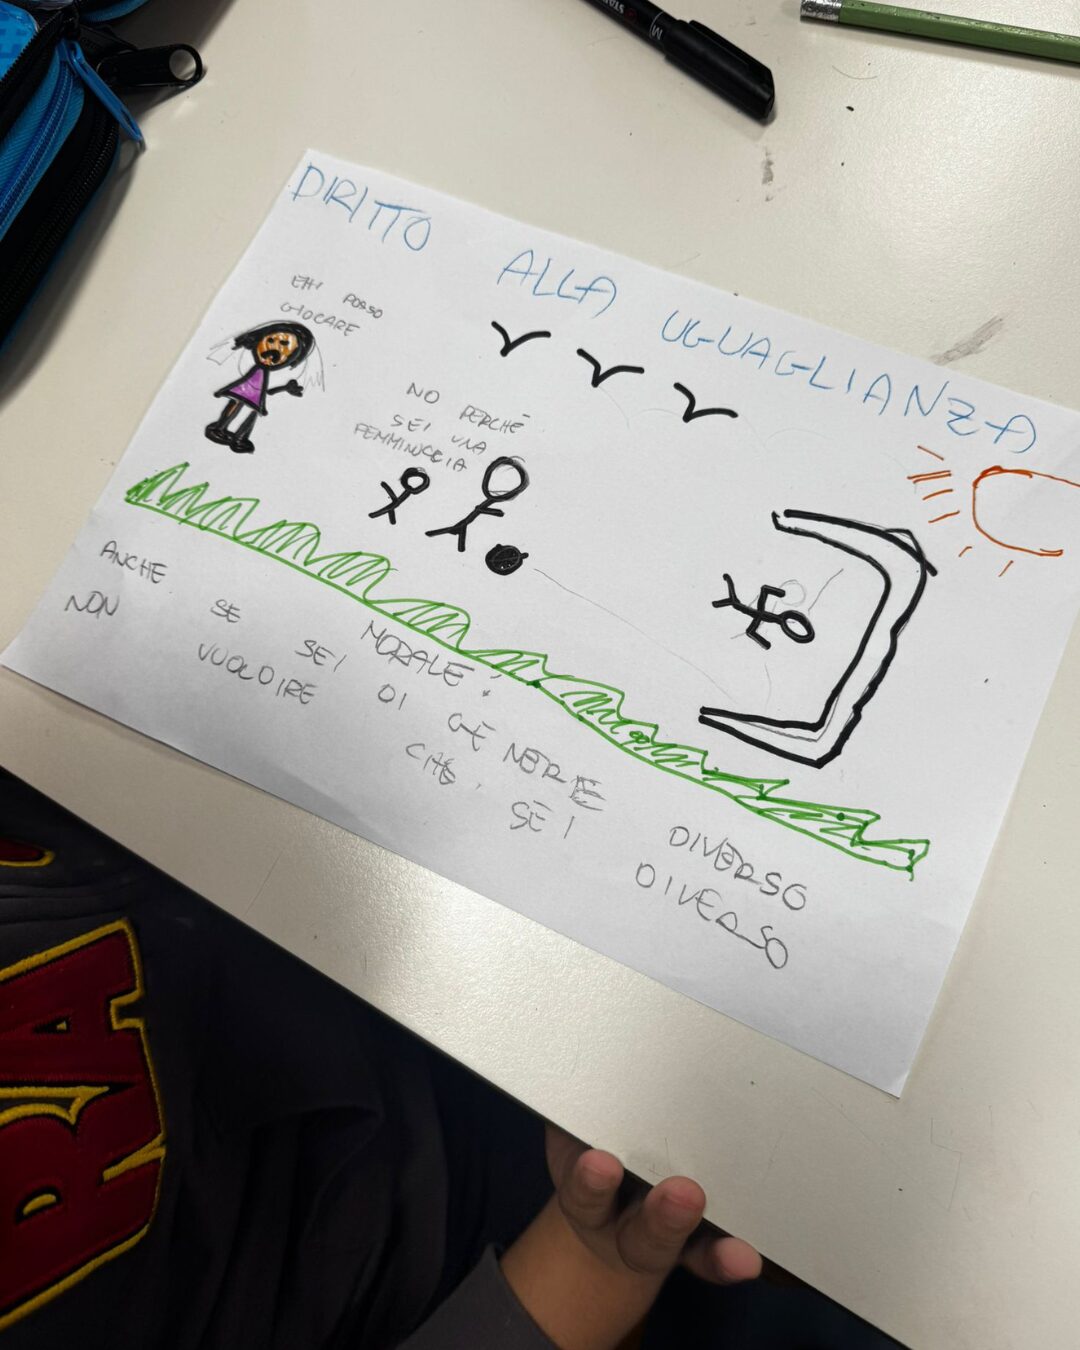 DIRITTO ALLA UGUAGLIANZA
EHI POSSO
GIOCARE
NO PERCHÉ
SEI UNA
FEMMINUCCIA
MORALE:
ANCHE SE SEI DI GENERE DIVERSO
NON VUOLDIRE CHE SEI DIVERSO
M